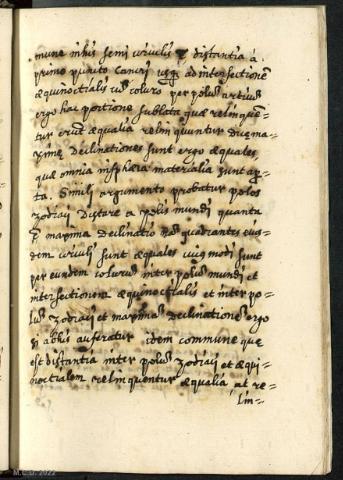 mune inhis semi circulis est distantia á
primo puncto Cancri usq ad intersectionē
æquinoctialis cū coluro per polos
ergo hac portione sublata quæ relinquen=
tur erunt æqualia relinquuntur due ma=
ximę Declinationes sunt ergo æquales,
quæ omnia in sphæra materiali sunt
ta. Simili argumento probatur polos
Zodiaci Distare a polis mundi quanta
est maxima Declinatio nā quadrantes eius=
dem circuli sunt æquales cuiusmodi sunt
per eundem colurū inter polū mundi et
intersectionem æquinoctialis et inter po=
lū Zodiaci et maximā Declinationē ergo
si abhis auferatur idem commune que
est distantia inter polū Zodiaci et æqui=
noctialem relinquentur æqualia at re=
lin=
M.C.D. 2022